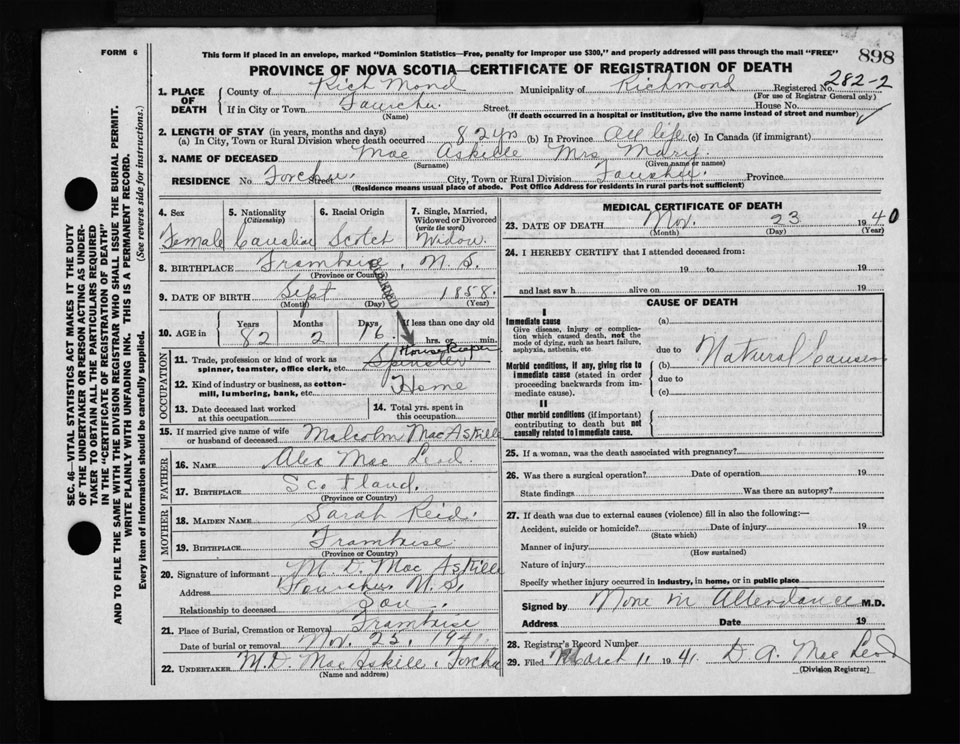 FORM 6
This form if placed in an envelope, marked "Dominion Statistics—Free, penalty for improper use $300," and properly addressed will pass through the mail "FREE"
898
PROVINCE OF NOVA SCOTIA—CERTIFICATE OF REGISTRATION OF DEATH
282-2
1. PLACE OF DEATH County of Rich Mond Municipality of Richmond Registered No.
(For use of Registrar General only)
If in City or Town Fourchu Street House No.
(Name) (If death occurred in a hospital or institution, give the name instead of street and number)
2. LENGTH OF STAY (in years, months and days)
(a) In City, Town or Rural Division where death occurred 82 yrs (b) In Province All life (c) In Canada (if immigrant)
3. NAME OF DECEASED Mac Askille Mrs Mary.
(Surname) (Given name or names)
RESIDENCE No Forchu. Street City, Town or Rural Division Fourchu. Province
(Residence means usual place of abode. Post Office Address for residents in rural parts not sufficient)
4. Sex
Female
5. Nationality
(Citizenship)
Canadian
6. Racial Origin
Scotch
7. Single, Married, Widowed or Divorced
(write the word)
Widow.
8. BIRTHPLACE Framboise, N. S.
(Province or Country)
9. DATE OF BIRTH Sept 1858.
(Month) (Day) (Year)
10. AGE in
Years Months Days If less than one day old
82 2 16 hrs. or min.
OCCUPATION
11. Trade, profession or kind of work as spinner, teamster, office clerk, etc. Spinster
House Keeper
12. Kind of industry or business, as cotton-mill, lumbering, bank, etc. Home
13. Date deceased last worked at this occupation
14. Total yrs. spent in this occupation
15. If married give name of wife or husband of deceased Malcolm MacAskille
FATHER
16. NAME Alex Mac Leod.
17. BIRTHPLACE Scotland.
(Province or Country)
MOTHER
18. MAIDEN NAME Sarah Reid.
19. BIRTHPLACE Framboise
(Province or Country)
20. Signature of informant M. D. Mac Askille
Address Fourchu N. S.
Relationship to deceased Son.
21. Place of Burial, Cremation or Removal Framboise
Date of burial or removal Nov. 25, 1941.
22. UNDERTAKER M.D. MacAskille, Forchu
(Name and address)
MEDICAL CERTIFICATE OF DEATH
23. DATE OF DEATH Nov. 23 1940
(Month) (Day) (Year)
24. I HEREBY CERTIFY that I attended deceased from:
19 to 19
and last saw h alive on 19
CAUSE OF DEATH
I
Immediate cause
Give disease, injury or complication which caused death, not the mode of dying, such as heart failure, asphyxia, asthenia, etc
(a)
due to
Morbid conditions, if any, giving rise to immediate cause (stated in order proceeding backwards from immediate cause).
(b) Natural Causes
due to
(c)
II
Other morbid conditions (if important) contributing to death but not causally related to immediate cause.
25. If a woman, was the death associated with pregnancy?
26. Was there a surgical operation? Date of operation 19
State findings Was there an autopsy?
27. If death was due to external causes (violence) fill in also the following:—
Accident, suicide or homicide? Date of injury 19
(State which)
Manner of injury
(How sustained)
Nature of injury
Specify whether injury occurred in industry, in home, or in public place
Signed by None in Attendance M.D.
Address Date 19
28. Registrar's Record Number
29. Filed March 11 1941 D. A. Mac Leod
(Division Registrar)
SEC. 46—VITAL STATISTICS ACT MAKES IT THE DUTY
OF THE UNDERTAKER OR PERSON ACTING AS UNDER-
TAKER TO OBTAIN ALL THE PARTICULARS REQUIRED
IN THE "CERTIFICATE OF REGISTRATION OF DEATH"
AND TO FILE THE SAME WITH THE DIVISION REGISTRAR WHO SHALL ISSUE THE BURIAL PERMIT.
WRITE PLAINLY WITH UNFADING INK. THIS IS A PERMANENT RECORD.
Every item of information should be carefully supplied. (See reverse side for instructions.)